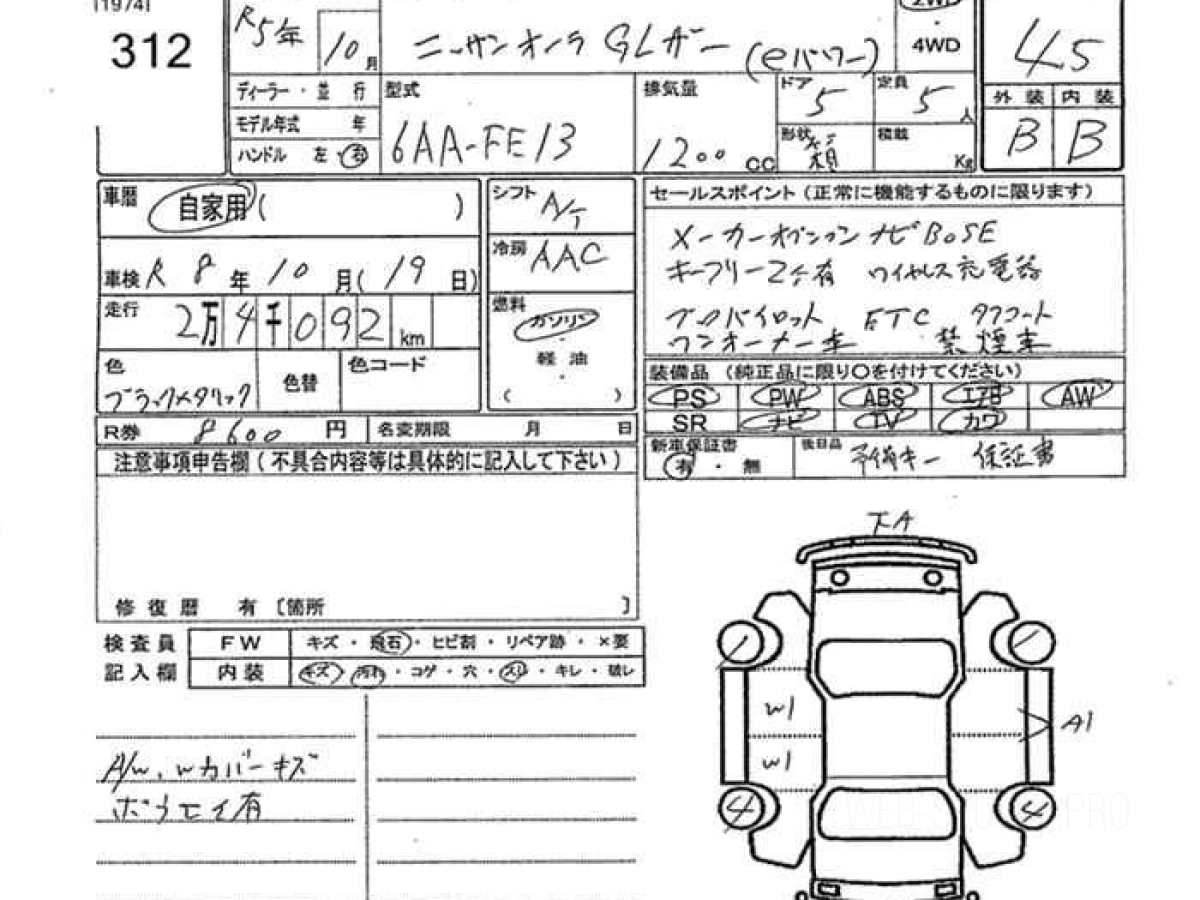 [1974]
312
R5年
10月
ニッサン オーラ GLガー (eパワー)
2WD
・
4WD
4.5
ディーラー・並 行
型式
6AA-FE13
排気量
1200 cc
ドア
5
定員
5人
外 装
内 装
B
B
モデル年式 年
ハンドル 左・右
形状
箱
積載
Kg
車歴
自家用 ( )
シフト
A/T
セールスポイント (正常に機能するものに限ります)
メーカーオプション ナビ BOSE
キーフリー2ケ有 ワイヤレス充電器
プロパイロット ETC タフコート
ワンオーナー車 禁煙車
冷房
AAC
車検 R 8 年 10 月(19 日)
走行
2万4千092 km
燃料
ガソリン
軽 油
・
( )
色
ブラックメタリック
色替
色コード
装備品 (純正品に限り○を付けてください)
PS PW ABS エアB AW
SR ナビ TV カワ
R券 8600 円
名変期限 月 日
新車保証書
有 ・ 無
後日品
予備キー 保証書
注意事項申告欄 (不具合内容等は具体的に記入して下さい)
修 復 歴 有 〔箇所 〕
検 査 員
記 入 欄
FW
キズ ・ 飛石 ・ ヒビ割 ・ リペア跡 ・ ×要
内 装
キズ ・ 汚れ ・ コゲ ・ 穴 ・ スレ ・ キレ ・ 破レ
A/W、Wカバーキズ
下A
W1
W1
A1
4
4
WEB- PRO